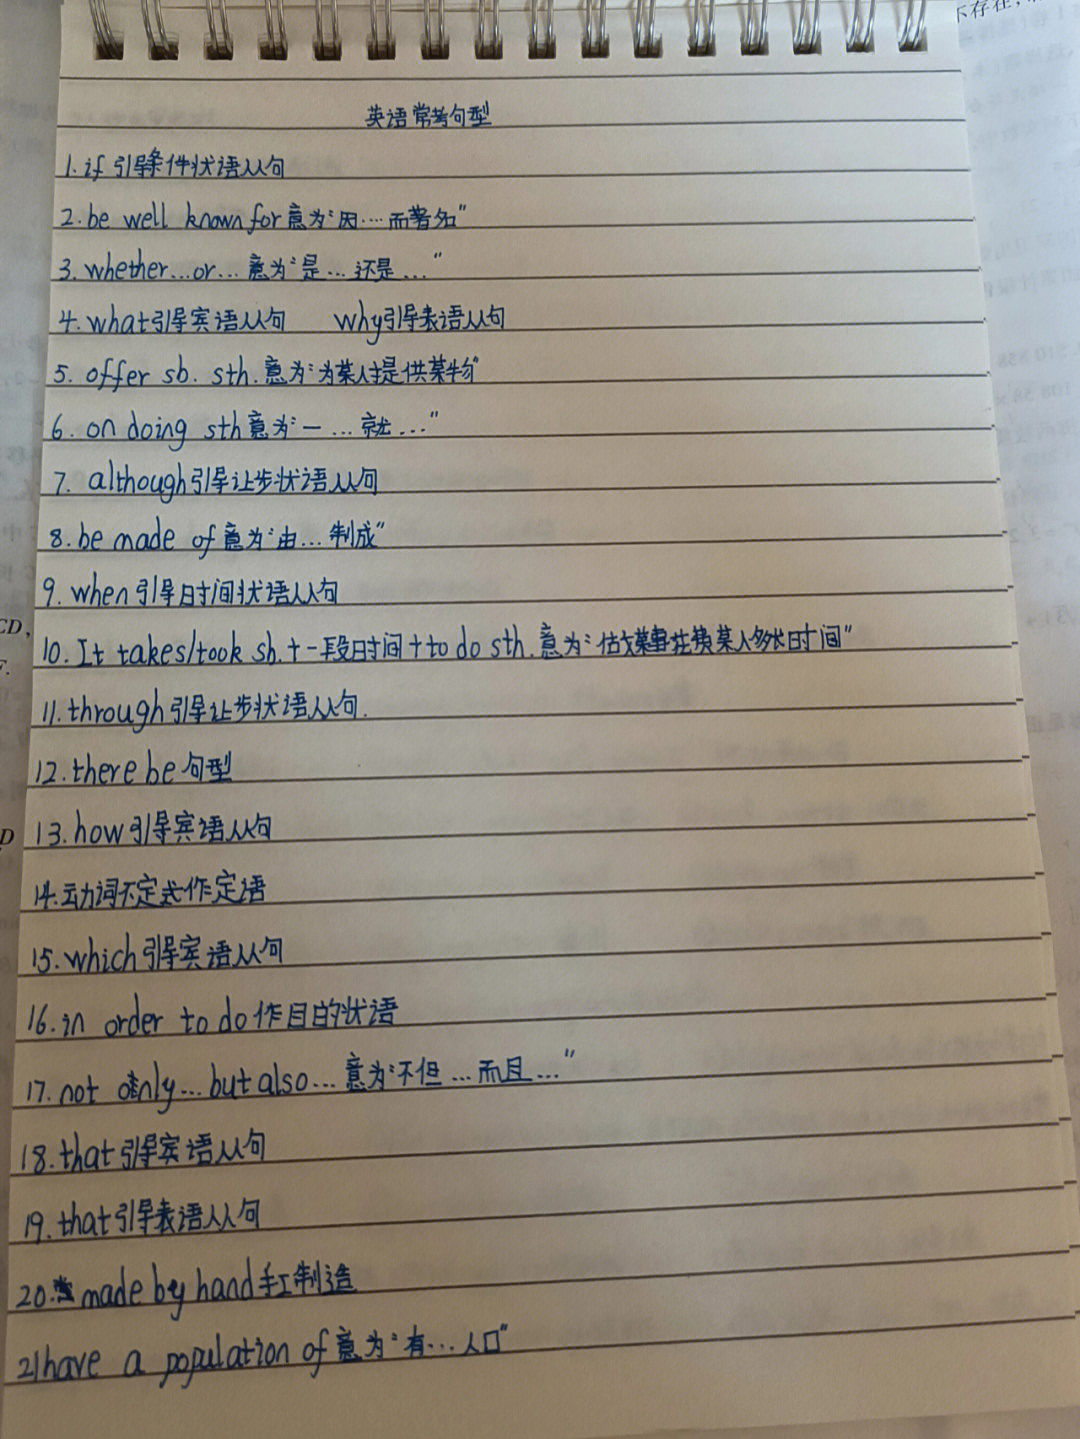 英语常考句型
1.if引导条件状语从句
2.be well known for意为“因…而著名”
3.whether...or...意为“是...还是...”
4.what引导宾语从句 why引导表语从句
5.offer sb. sth.意为“为某人提供某物”
6.on doing sth意为“一...就...”
7.although引导让步状语从句
8.be made of意为“由...制成”
9.when引导时间状语从句
10.It takes/took sb.+一段时间+to do sth.意为“做某事花费某人多长时间”
11.through引导让步状语从句.
12.there be句型
13.how引导宾语从句
14.动词不定式作定语
15.which引导宾语从句
16.in order to do作目的状语
17.not only...but also...意为“不但...而且...”
18.that引导宾语从句
19.that引导表语从句
20.made by hand手工制造
21have a population of意为“有...人口”